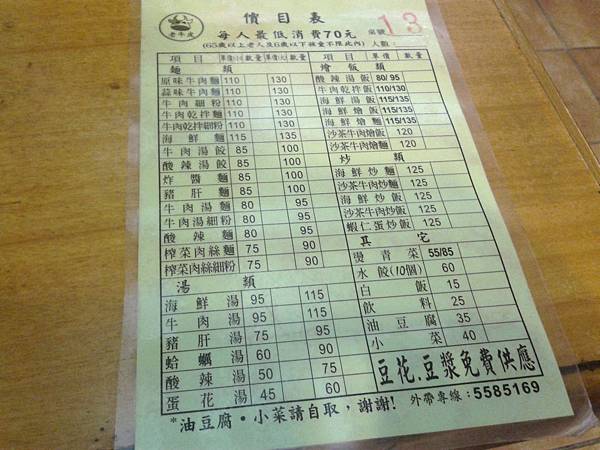 老牛皮
價目表
每人最低消費70元
桌號
13
(65歲以上老人及6歲以下孩童不限此內)
人數:
項目 單價(小) 數量 單價(大) 數量
麵類
原味牛肉麵 110 130
蒜味牛肉麵 110 130
牛肉細粉 110 130
牛肉乾拌麵 110 130
牛肉乾拌細粉 110 130
海鮮麵 115 135
牛肉湯餃 85 100
酸辣湯餃 85 100
炸醬麵 85 100
豬肝麵 85 100
牛肉湯麵 80 95
牛肉湯細粉 80 95
酸辣麵 80 95
榨菜肉絲麵 75 90
榨菜肉絲細粉 75 90
湯類
海鮮湯 95 115
牛肉湯 95 115
豬肝湯 75 95
蛤蠣湯 60 90
酸辣湯 50 75
蛋花湯 45 60
項目 單價 數量
燴飯類
酸辣湯飯 80/95
牛肉乾拌飯 110/130
海鮮湯飯 115/135
海鮮燴飯 115/135
海鮮燴麵 115/135
沙茶牛肉燴飯 120
沙茶牛肉燴麵 120
炒類
海鮮炒麵 125
沙茶牛肉炒麵 125
海鮮炒飯 125
沙茶牛肉炒飯 125
蝦仁蛋炒飯 125
其它
燙青菜 55/85
水餃(10個) 60
白飯 15
飲料 25
油豆腐 35
小菜 40
豆花.豆漿免費供應
*油豆腐·小菜請自取,謝謝!
外帶專線:5585169